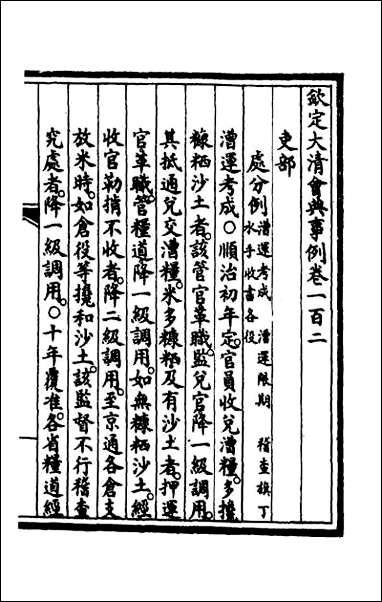 欽定大清會典事例卷一百二
吏部
處分例 漕運考成 漕運限期 稽查旗丁
水手收書各役
漕運考成○順治初年定。官員收兌漕糧。多攙
糠粞沙土者。該管官革職。監兌官降一級調用。
其抵通兌交漕糧。米多糠粞及有沙土者。押運
官革職。管糧道降一級調用。如無糠粞沙土。經
收官勒掯不收者。降二級調用。至京通各倉支
放米時。如倉役等攙和沙土。該監督不行稽查
究處者。降一級調用。○十年覆准。各省糧道經